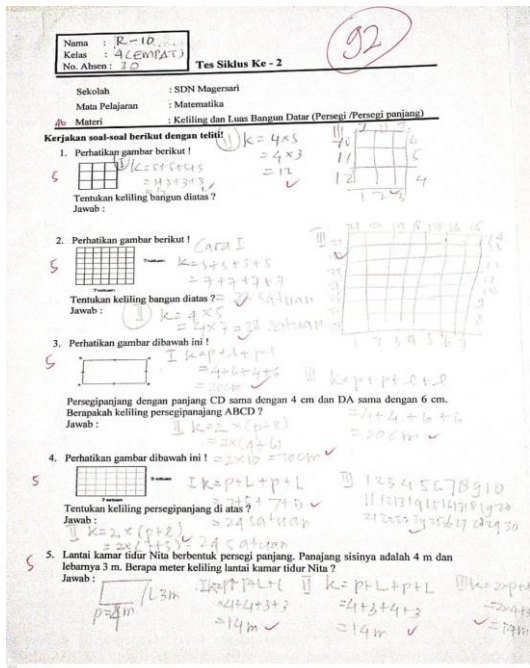 92
Nama : R-10
Kelas : 4 (EMPAT)
No. Absen : 10
Tes Siklus Ke - 2
Sekolah : SDN Magersari
Mata Pelajaran : Matematika
Materi : Keliling dan Luas Bangun Datar (Persegi /Persegi panjang)
Kerjakan soal-soal berikut dengan teliti!
1. Perhatikan gambar berikut !
I K = S+S+S+S
= 3+3+3+3
II K = 4×S
= 4×3
= 12
III
5
Tentukan keliling bangun diatas ?
Jawab :
2. Perhatikan gambar berikut !
Cara I
K = S+S+S+S
= 7+7+7+7
= 28 satuan
5
7 satuan
7 satuan
Tentukan keliling bangun diatas ?
Jawab :
II K = 4 × S
= 4×7 = 28 satuan
III
1 2 3 4 5 6 7
3. Perhatikan gambar dibawah ini !
I K=p+l+p+l
= 4+6+4+6
= 20cm
II K=p+p+l+l
= 4+4+6+6
= 20cm
5
Persegipanjang dengan panjang CD sama dengan 4 cm dan DA sama dengan 6 cm.
Berapakah keliling persegipanajang ABCD ?
Jawab :
II K=2×(p+l)
= 2×(4+6)
= 2×10 = 20cm
4. Perhatikan gambar dibawah ini !
I K=P+L+P+L
= 7+5+7+5
= 24 satuan
III 1 2 3 4 5 6 7 8 9 10
5
5 satuan
7 satuan
Tentukan keliling persegipanjang di atas ?
Jawab :
II K=2×(p+l)
= 2×(7+5) = 24 satuan
5. Lantai kamar tidur Nita berbentuk persegi panjang. Panajang sisinya adalah 4 m dan
lebarnya 3 m. Berapa meter keliling lantai kamar tidur Nita ?
5
Jawab :
L 3m
p=4m
= 4+4+3+3
= 14m
II K=P+L+P+L
= 4+3+4+3
= 14m
= 14m